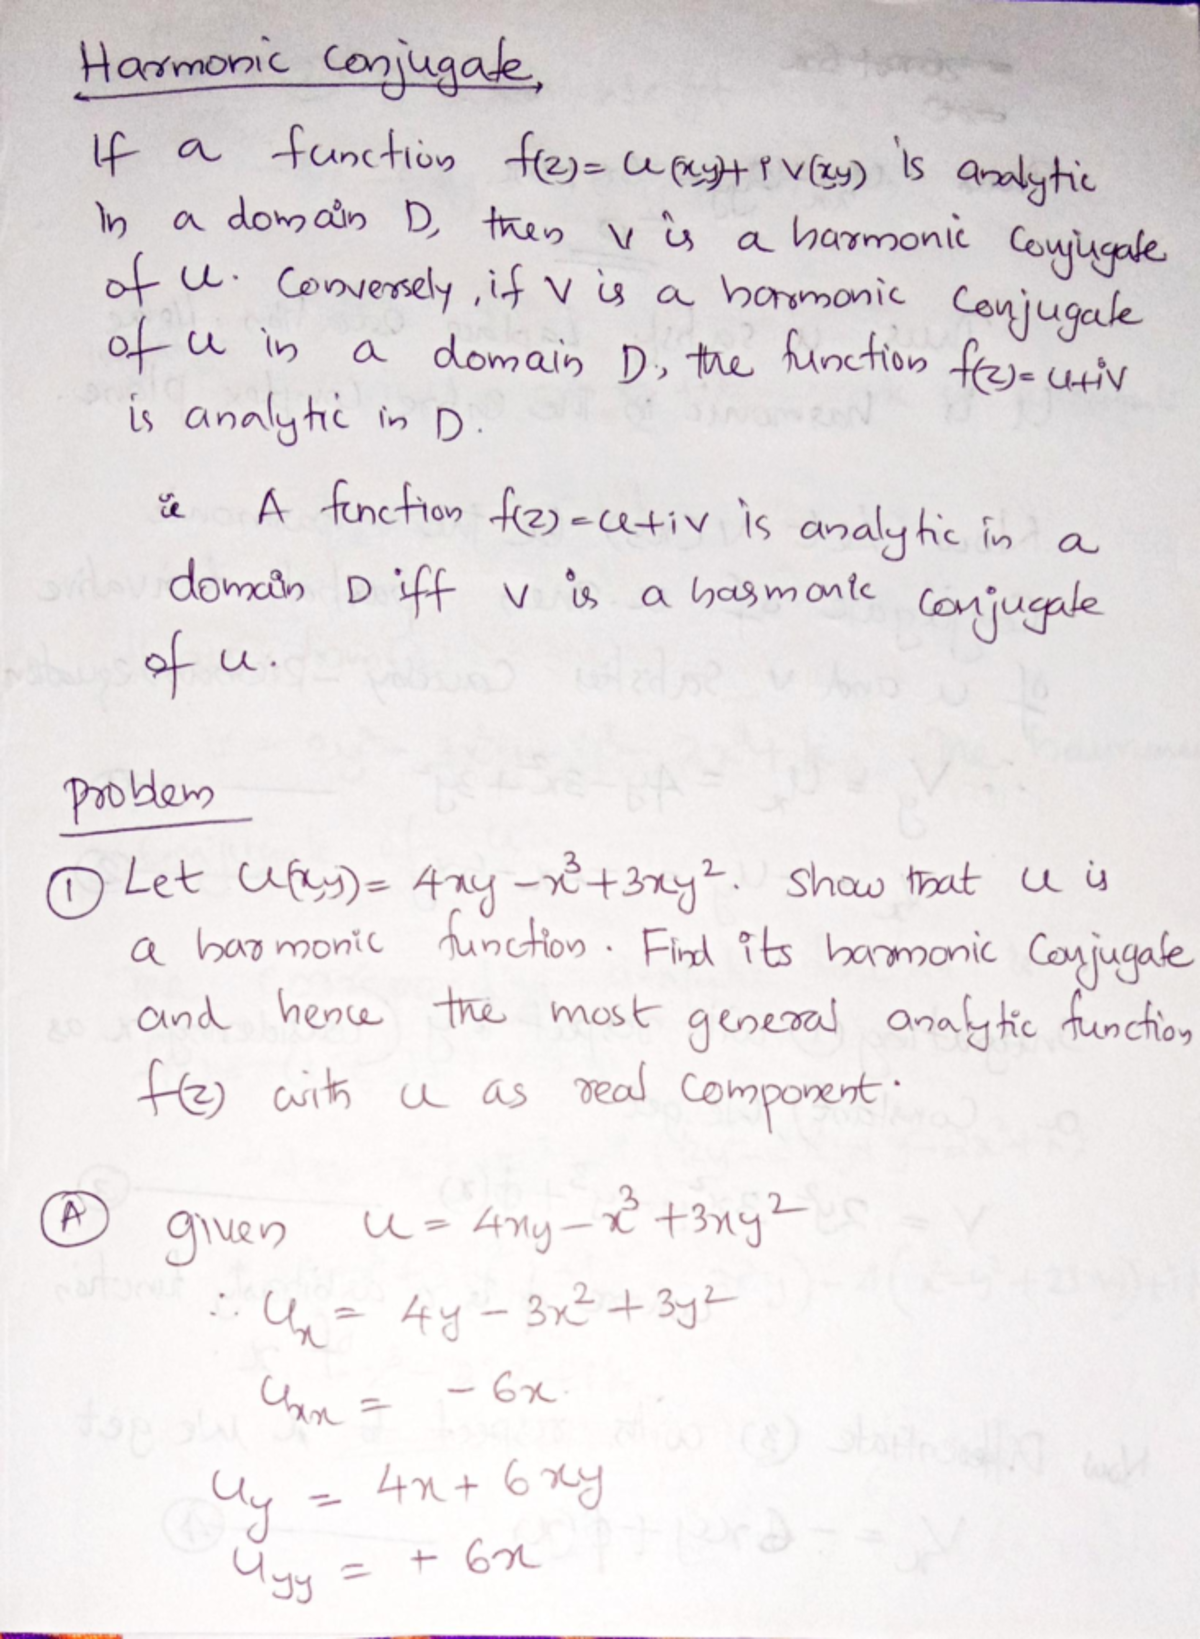 Harmonic Conjugate
If a function f(z)= u(x,y)+iv(x,y) is analytic
in a domain D, then v is a harmonic Conjugate
of u. Conversely, if v is a harmonic Conjugate
of u in a domain D, the function f(z)= u+iv
is analytic in D.
ie A function f(z)=u+iv is analytic in a
domain D iff v is a harmonic Conjugate
of u.
Problem
① Let u(x,y)= 4xy-x³+3xy². Show that u is
a harmonic function. Find its harmonic Conjugate
and hence the most general analytic function
f(z) with u as real Component.
Ⓐ given u = 4xy-x³+3xy²
∴ uₓ = 4y-3x²+3y²
uₓₓ = -6x.
u_y = 4x+6xy
u_yy = +6x